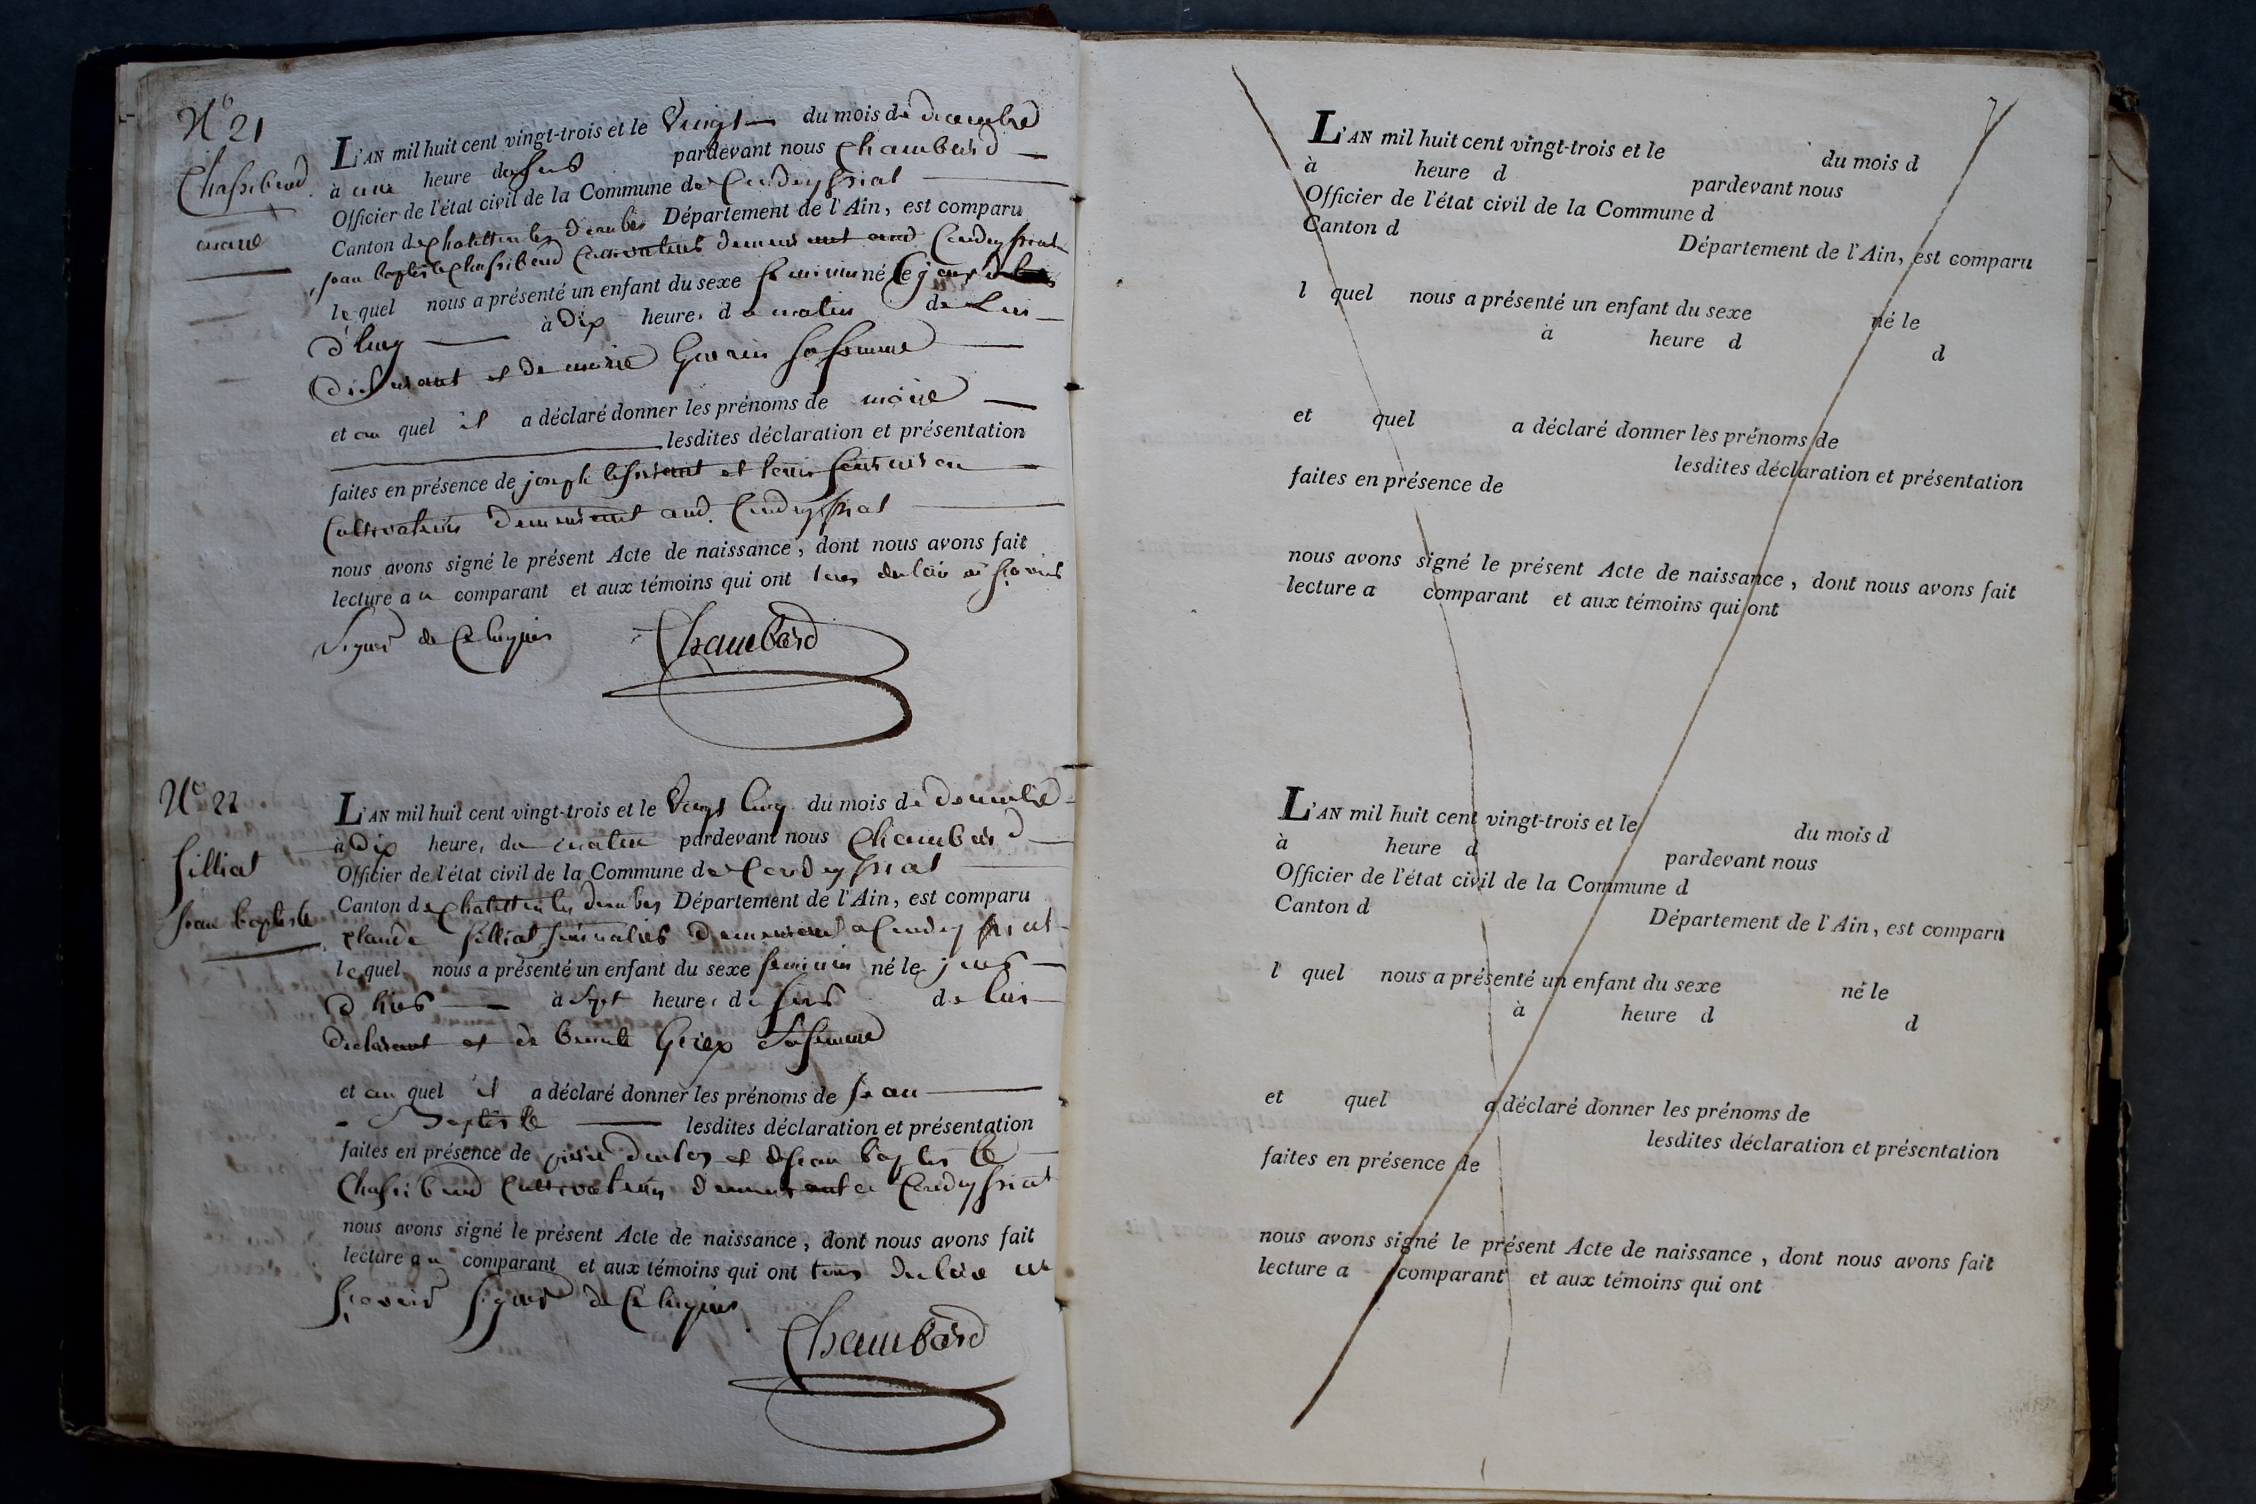 N.° 21
Chassibaud
marie
L'AN mil huit cent vingt-trois et le vingt du mois de decembre
à une heure du soir pardevant nous Chambard
Officier de l'état civil de la Commune de Condeyssiat
Canton de Chatillon les dombes Département de l'Ain, est comparu
jean baptiste Chassibaud Cultivateur demeurant aud. Condeyssiat
lequel nous a présenté un enfant du sexe feminin né le jour
d'huy à Dix heures du matin de lui
Declarant et de marie Guerin sa femme
et au quel il a déclaré donner les prénoms de marie
lesdites déclaration et présentation
faites en présence de joseph et
Cultivateurs demeurant aud. Condeyssiat
nous avons signé le présent Acte de naissance, dont nous avons fait
lecture au comparant et aux témoins qui ont tous declaré ne scavoir
signer de Ce Enquis
Chambard
N.° 22
Silliat
jean baptiste
L'AN mil huit cent vingt-trois et le vingt cinq du mois de decembre
à Dix heures du matin pardevant nous Chambard
Officier de l'état civil de la Commune de Condeyssiat
Canton de Chatillon les dombes Département de l'Ain, est comparu
Claude Silliat demeurant a Condeyssiat
lequel nous a présenté un enfant du sexe feminin né le jour
d'hier à sept heures du soir de lui
declarant et de benoite sa femme
et au quel il a déclaré donner les prénoms de jean
Baptiste lesdites déclaration et présentation
faites en présence de et de jean baptiste
Chassibaud Cultivateurs demeurant a Condeyssiat
nous avons signé le présent Acte de naissance, dont nous avons fait
lecture au comparant et aux témoins qui ont tous declaré ne
scavoir signer de Ce Enquis
Chambard
L'AN mil huit cent vingt-trois et le du mois d
à heure d pardevant nous
Officier de l'état civil de la Commune d
Canton d Département de l'Ain, est comparu
l quel nous a présenté un enfant du sexe né le
à heure d d
et quel a déclaré donner les prénoms de
lesdites déclaration et présentation
faites en présence de
nous avons signé le présent Acte de naissance, dont nous avons fait
lecture a comparant et aux témoins qui ont
L'AN mil huit cent vingt-trois et le du mois d
à heure d pardevant nous
Officier de l'état civil de la Commune d
Canton d Département de l'Ain, est comparu
l quel nous a présenté un enfant du sexe né le
à heure d d
et quel a déclaré donner les prénoms de
lesdites déclaration et présentation
faites en présence de
nous avons signé le présent Acte de naissance, dont nous avons fait
lecture a comparant et aux témoins qui ont